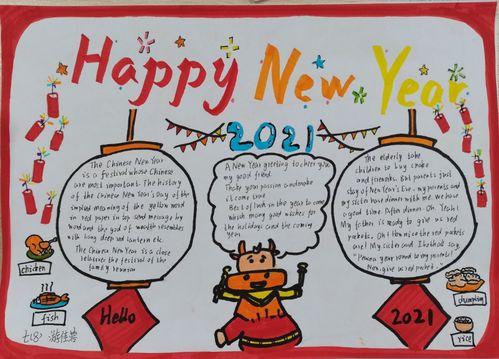 Happy New Year
2021
The Chinese New Year
is a festival whose Chinese
are most important. The history
of the Chinese New Year's Day of the
simplest meaning of the yellow word
in red paper in top send message by
word and the god of wealth resembles
with long deep red lantern etc.
The Chinese New Year is a close
relatives the festival of the
family reunion
A New Year greeting to cheer you
my good friend.
Take your passion and make
it come true
Best of luck in the year to come
which many good wishes for
the holidays and the coming
year.
The elderly take
children to buy
and firecrackers. But parents first
day of New Year's Eve. my parents and
my sister have dinner with me. we have
a good time. After dinner. Oh. Yeah!
My father is ready to give us red
packets. Oh! How nice the red packets
are! My sister and I
year round to my parents!
give us red packet.
chicken
fish
七(8) 游佳
Hello
2021
dumpling
rice